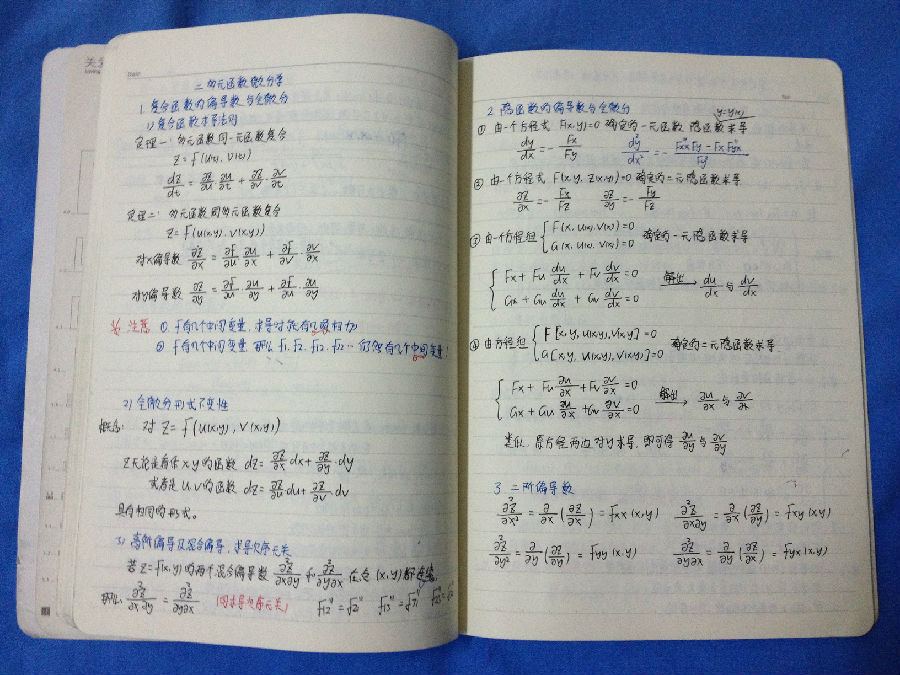 Date
二 多元函数微分学
1. 复合函数的偏导数与全微分
1) 复合函数求导法则
定理一: 多元函数同一元函数复合
Z = f(u(t), v(t))
dZ/dt = ∂Z/∂u ∂u/∂t + ∂Z/∂v · ∂v/∂t
定理二: 多元函数同多元函数复合
Z = f(u(x,y), v(x,y))
对x偏导数 ∂Z/∂x = ∂f/∂u ∂u/∂x + ∂f/∂v · ∂v/∂x
对y偏导数 ∂Z/∂y = ∂f/∂u · ∂u/∂y + ∂f/∂u ∂u/∂y
注意 ①. f有几个中间变量, 求导时就有几项相加
② f有几个中间变量, 那么 f1. f2. f12. f12 … 仍然有几个中间变量!
2) 全微分形式不变性
概念: 对 Z = f(u(x,y), v(x,y))
Z无论是看作 x.y 的函数 dZ = ∂Z/∂x dx + ∂Z/∂y · dy
或者是 u.v 的函数 dZ = ∂Z/∂u du + ∂Z/∂v · dv
具有相同的形式。
3) 高阶偏导及混合偏导, 求导次序无关
若 Z = f(x,y) 的两个混合偏导数 ∂²Z/∂x∂y 和 ∂²Z/∂y∂x 在点 (x,y) 都连续,
∂²Z/∂x∂y = ∂²Z/∂y∂x (同求导次序无关) f12'' = f21'' f13'' = f31''
2. 隐函数的偏导数与全微分
y=y(x)
① 由一个方程式 F(x,y)=0 确定的一元函数 隐函数求导
dy/dx = - Fx/Fy d²y/dx² = - (Fxx''Fy - FxFyx'')/Fy²
② 由一个方程式 F(x,y, Z(x,y))=0 确定的二元隐函数求导
∂Z/∂x = - Fx/FZ ∂Z/∂y = - Fy/FZ
③ 由一个方程组 { F(x, u(x), v(x)) = 0 确定的一元隐函数求导
G(x, u(x), v(x)) = 0
{ Fx + Fu du/dx + Fv dv/dx = 0 解出→ du/dx 与 dv/dx
Gx + Gu du/dx + Gv dv/dx = 0
④ 由方程组 { F[x,y, u(x,y), v(x,y)] = 0 确定的二元隐函数求导.
G[x,y, u(x,y), v(x,y)] = 0
{ Fx + Fu ∂u/∂x + Fv ∂v/∂x = 0 解出→ ∂u/∂x 与 ∂v/∂x
Gx + Gu ∂u/∂x + Gv ∂v/∂x = 0
类似, 原方程两边对y求导, 即可得 ∂u/∂y 与 ∂v/∂y
3 二阶偏导数
∂²Z/∂x² = ∂/∂x (∂Z/∂x) = fxx(x,y) ∂²Z/∂x∂y = ∂/∂x (∂Z/∂y) = fxy(x,y)
∂²Z/∂y² = ∂/∂y (∂Z/∂y) = fyy(x,y) ∂²Z/∂y∂x = ∂/∂y (∂Z/∂x) = fyx(x,y)